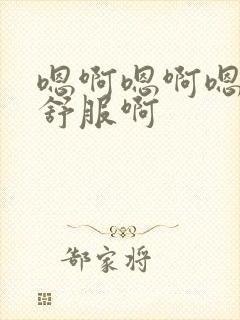 嗯啊嗯啊嗯
舒服啊
郜家将